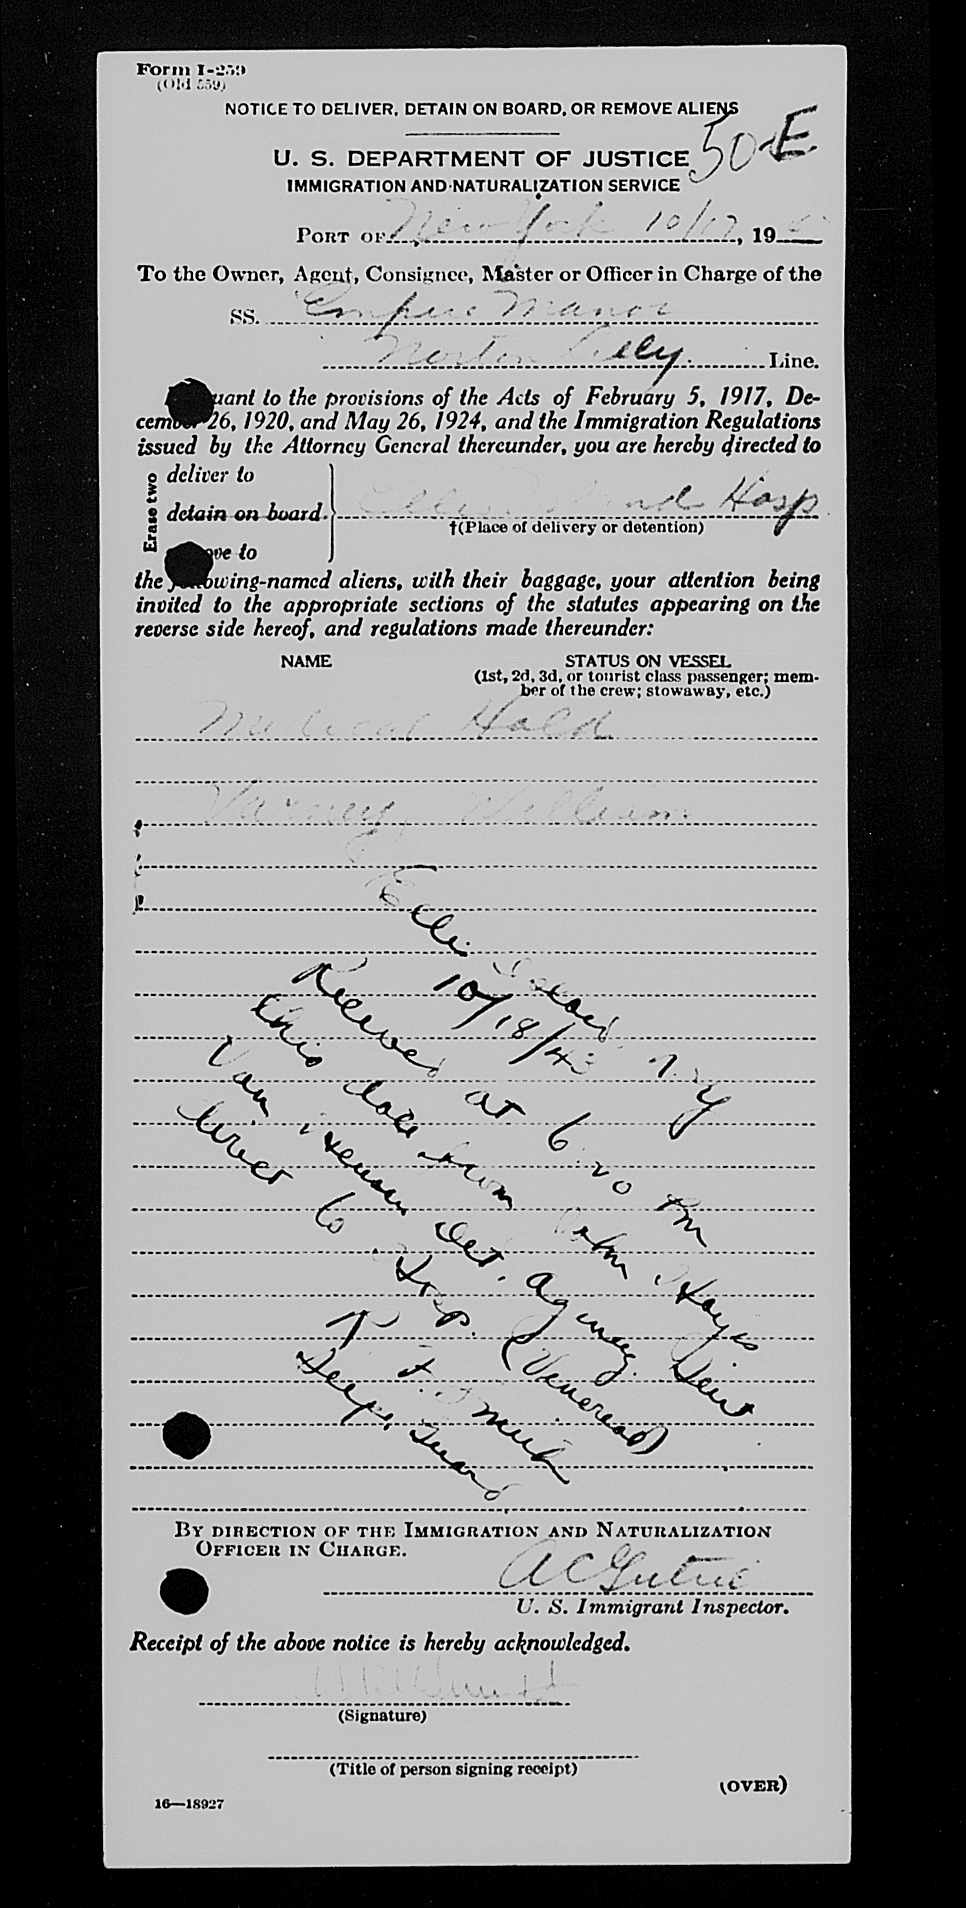 Form I-259
(Old 559)
NOTICE TO DELIVER, DETAIN ON BOARD, OR REMOVE ALIENS
50-E
U. S. DEPARTMENT OF JUSTICE
IMMIGRATION AND NATURALIZATION SERVICE
PORT OF New York 10/17, 19
To the Owner, Agent, Consignee, Master or Officer in Charge of the
SS. Empire Manor
Norton Lilly Line.
uant to the provisions of the Acts of February 5, 1917, De-
cember 26, 1920, and May 26, 1924, and the Immigration Regulations
issued by the Attorney General thereunder, you are hereby directed to
Erase two
deliver to
detain on board
ove to
Ellis Island Hosp.
†(Place of delivery or detention)
the following-named aliens, with their baggage, your attention being
invited to the appropriate sections of the statutes appearing on the
reverse side hereof, and regulations made thereunder:
NAME
STATUS ON VESSEL
(1st, 2d, 3d, or tourist class passenger; mem-
ber of the crew; stowaway, etc.)
Medical Hold
Varney William
Ellis Island N.Y
10/18/43
Received at 6 20 Pm
this date from John Hayes
Van Det. Agency Sent
direct to Hosp. (Venereal)
R. F. Smith
Guard
BY DIRECTION OF THE IMMIGRATION AND NATURALIZATION
OFFICER IN CHARGE.
A C Gutrie
U. S. Immigrant Inspector.
Receipt of the above notice is hereby acknowledged.
(Signature)
(Title of person signing receipt)
(OVER)
16—18927